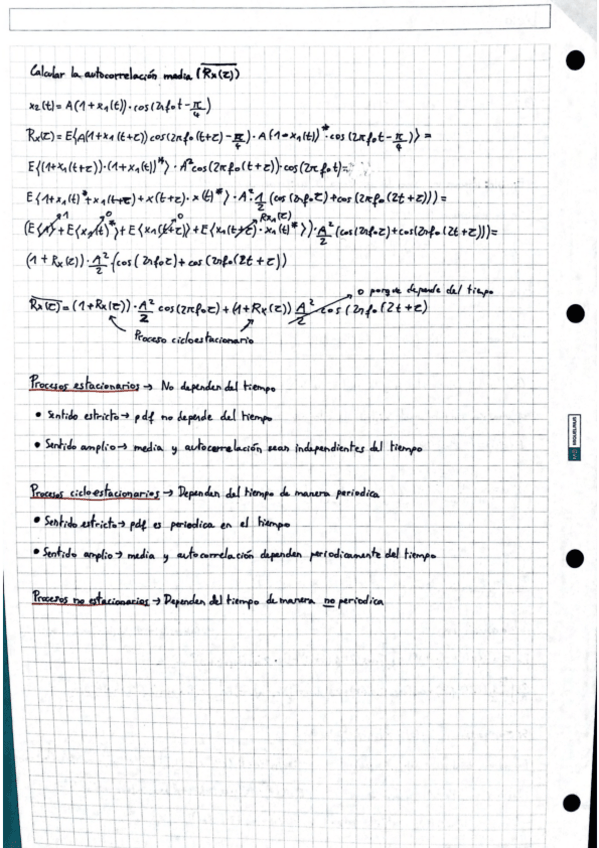 Calcular la autocorrelación media (R̅x̅(̅τ̅)̅)
x₂(t) = A(1 + x₁(t)) · cos(2πf₀t - π/4)
Rx(τ) = E{A(1+x₁(t+τ)) cos(2πf₀(t+τ) - π/4) · A(1+x₁(t))* · cos(2πf₀t - π/4)} =
E{(1+x₁(t+τ)) · (1+x₁(t))*} · A² cos(2πf₀(t+τ)) · cos(2πf₀t) =
E{1+x₁(t)* + x₁(t+τ) + x(t+τ) · x(t)*} · A² · 1/2 (cos(2πf₀τ) + cos(2πf₀(2t+τ))) =
(E{1}→1 + E{x₁(t)*}→0 + E{x₁(t+τ)}→0 + E{x₁(t+τ) · x₁(t)*}→Rx₁(τ)) · A²/2 (cos(2πf₀τ) + cos(2πf₀(2t+τ))) =
(1 + Rx(τ)) · A²/2 (cos(2πf₀τ) + cos(2πf₀(2t+τ))
0 porque depende del tiempo
R̅x̅(̅τ̅)̅ = (1+Rx(τ)) · A²/2 cos(2πf₀τ) + (1+Rx(τ)) A²/2 cos(2πf₀(2t+τ)
Proceso cicloestacionario
Procesos estacionarios → No dependen del tiempo
• Sentido estricto → pdf no depende del tiempo
• Sentido amplio → media y autocorrelación sean independientes del tiempo
Procesos cicloestacionarios → Dependen del tiempo de manera periodica
• Sentido estricto → pdf es periodica en el tiempo
• Sentido amplio → media y autocorrelación dependen periodicamente del tiempo
Procesos no estacionarios → Dependen del tiempo de manera no periodica
MIQUELRIUS